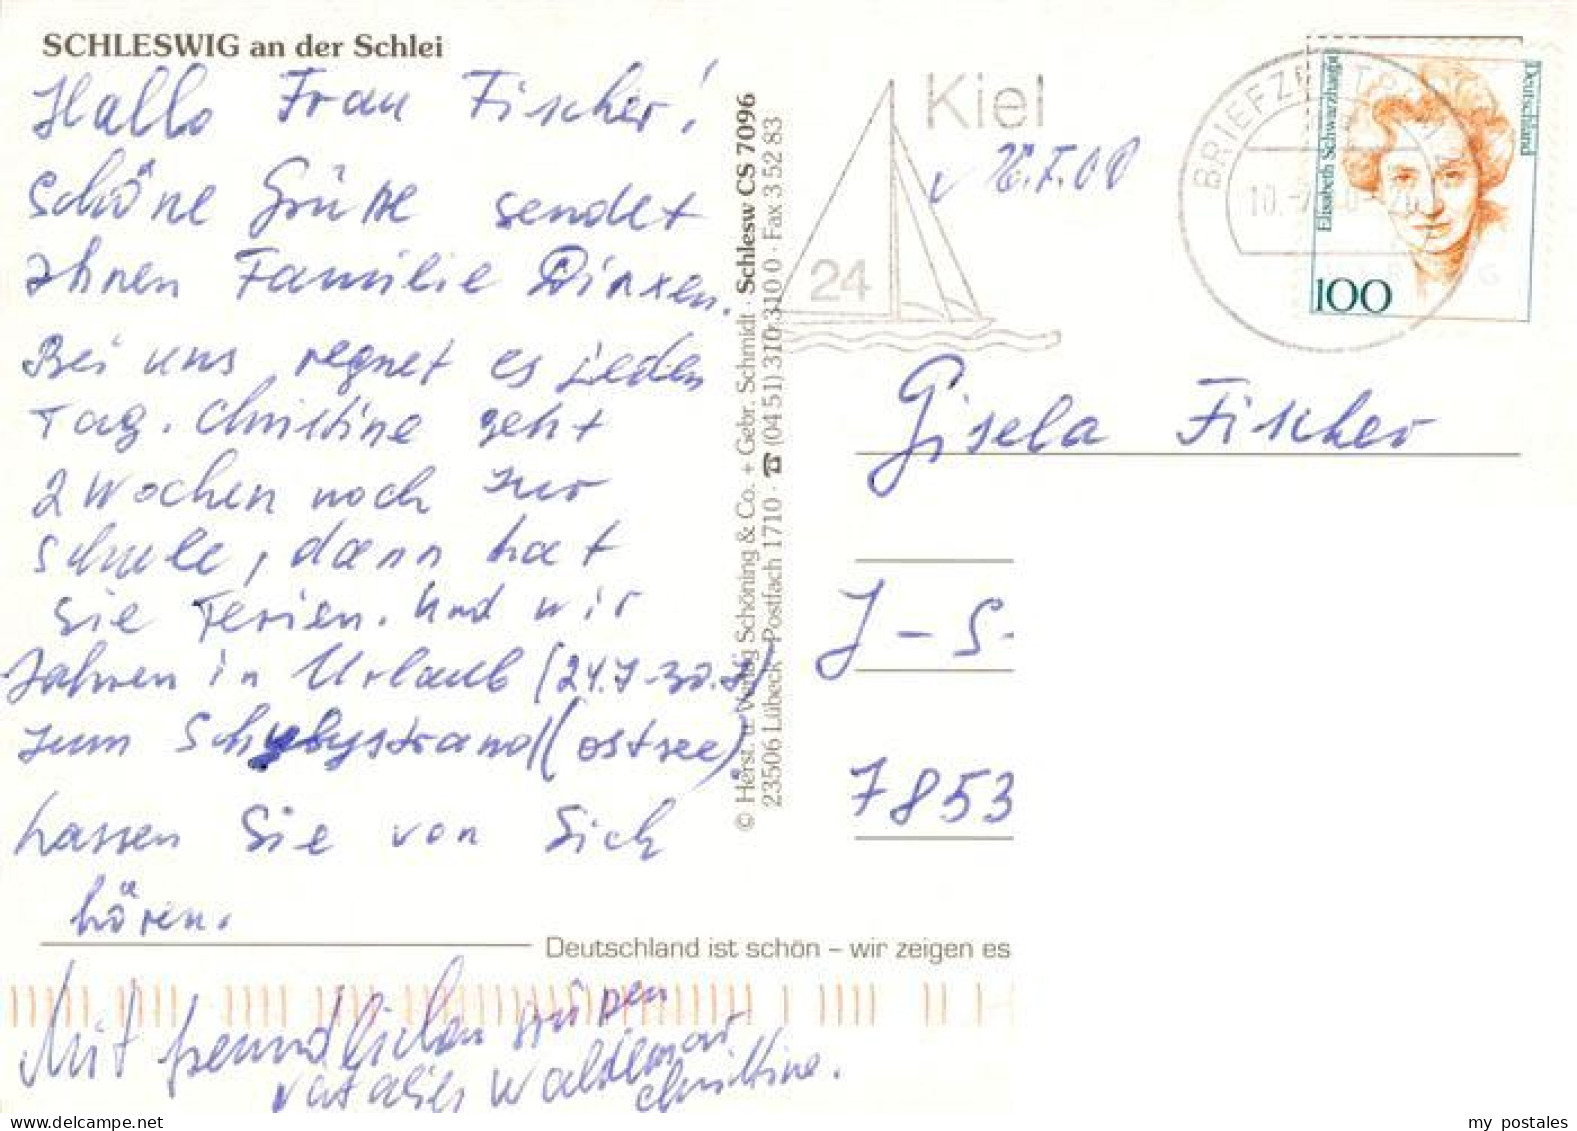 SCHLESWIG an der Schlei
Hallo Frau Fischer!
Schöne Grüße sendet
Ihnen Familie Dirxen.
Bei uns regnet es jeden
Tag. Christine geht
2 Wochen noch zur
Schule, dann hat
sie Ferien. Und wir
fahren in Urlaub (24.7-30.7)
zum Schubystrand (Ostsee)
Lassen Sie von Sich
hören.
Mit freundlichen Grüßen
Waldemar
Christine.
© Herst. u. Verlag Schöning & Co. + Gebr. Schmidt · Schlesw CS 7096
23506 Lübeck · Postfach 1710 · ☎ (04 51) 310 310 0 · Fax 3 52 83
Deutschland ist schön – wir zeigen es
Kiel
24
BRIEFZENTRUM
Deutschland
Elisabeth Schwarzhaupt
100
Gisela Fischer
J-S-
7853
my postales